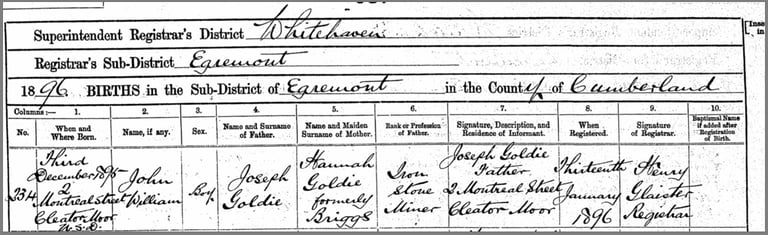 Superintendent Registrar's District Whitehaven
Registrar's Sub-District Egremont
1896. BIRTHS in the Sub-District of Egremont in the County of Cumberland
Columns:— 1. 2. 3. 4. 5. 6. 7. 8. 9. 10.
No. When and Where Born. Name, if any. Sex. Name and Surname of Father. Name and Maiden Surname of Mother. Rank or Profession of Father. Signature, Description, and Residence of Informant. When Registered. Signature of Registrar. Baptismal Name if added after Registration of Birth.
234 Third December 1895 2 Montreal Street Cleator Moor U.S.D. John William Boy Joseph Goldie Hannah Goldie formerly Briggs Iron Stone Miner Joseph Goldie Father 2 Montreal Street Cleator Moor Thirteenth January 1896 Henry Glaister Registrar